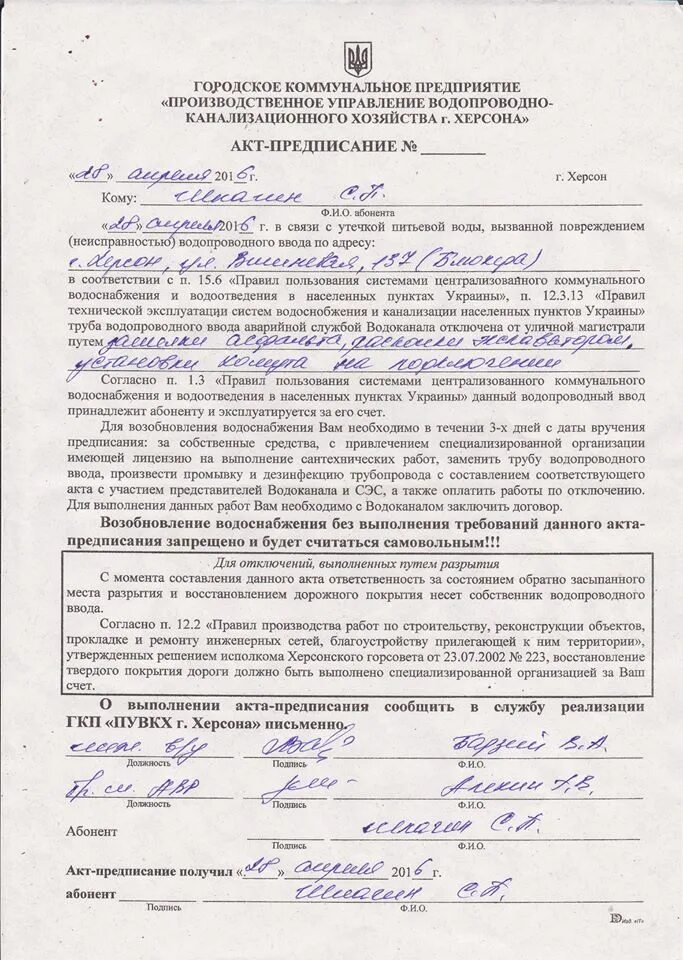 ГОРОДСКОЕ КОММУНАЛЬНОЕ ПРЕДПРИЯТИЕ
«ПРОИЗВОДСТВЕННОЕ УПРАВЛЕНИЕ ВОДОПРОВОДНО-
КАНАЛИЗАЦИОННОГО ХОЗЯЙСТВА г. ХЕРСОНА»
АКТ-ПРЕДПИСАНИЕ №
«28» апреля 2016 г. г. Херсон
Кому: Шкагин С.П.
Ф.И.О. абонента
«28» апреля 2016 г. в связи с утечкой питьевой воды, вызванной повреждением
(неисправностью) водопроводного ввода по адресу:
г. Херсон, ул. 137
в соответствии с п. 15.6 «Правил пользования системами централизованого коммунального
водоснабжения и водоотведения в населенных пунктах Украины», п. 12.3.13 «Правил
технической эксплуатации систем водоснабжения и канализации населенных пунктов Украины»
труба водопроводного ввода аварийной службой Водоканала отключена от уличной магистрали
путем ломки асфальта, раскопки экскаватором,
установки хомута на подключении
Согласно п. 1.3 «Правил пользования системами централизованного коммунального
водоснабжения и водоотведения в населенных пунктах Украины» данный водопроводный ввод
принадлежит абоненту и эксплуатируется за его счет.
Для возобновления водоснабжения Вам необходимо в течении 3-х дней с даты вручения
предписания: за собственные средства, с привлечением специализированной организации
имеющей лицензию на выполнение сантехнических работ, заменить трубу водопроводного
ввода, произвести промывку и дезинфекцию трубопровода с составлением соответствующего
акта с участием представителей Водоканала и СЭС, а также оплатить работы по отключению.
Для выполнения данных работ Вам необходимо с Водоканалом заключить договор.
Возобновление водоснабжения без выполнения требований данного акта-
предписания запрещено и будет считаться самовольным!!!
Для отключений, выполненных путем разрытия
С момента составления данного акта ответственность за состоянием обратно засыпанного
места разрытия и восстановлением дорожного покрытия несет собственник водопроводного
ввода.
Согласно п. 12.2 «Правил производства работ по строительству, реконструкции объектов,
прокладке и ремонту инженерных сетей, благоустройству прилегающей к ним территории»,
утвержденных решением исполкома Херсонского горсовета от 23.07.2002 № 223, восстановление
твердого покрытия дороги должно быть выполнено специализированной организацией за Ваш
счет.
О выполнении акта-предписания сообщить в службу реализации
ГКП «ПУВКХ г. Херсона» письменно.
В.А.
Должность Подпись Ф.И.О.
АВР Алехин Г.В.
Должность Подпись Ф.И.О.
Абонент Шкагин С.П.
Подпись Ф.И.О.
Акт-предписание получил «28» апреля 2016 г.
абонент Шкагин С.П.
Подпись Ф.И.О.